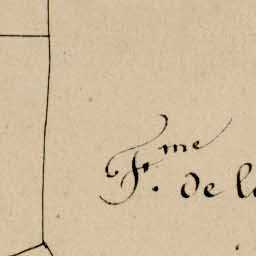 F.me de l